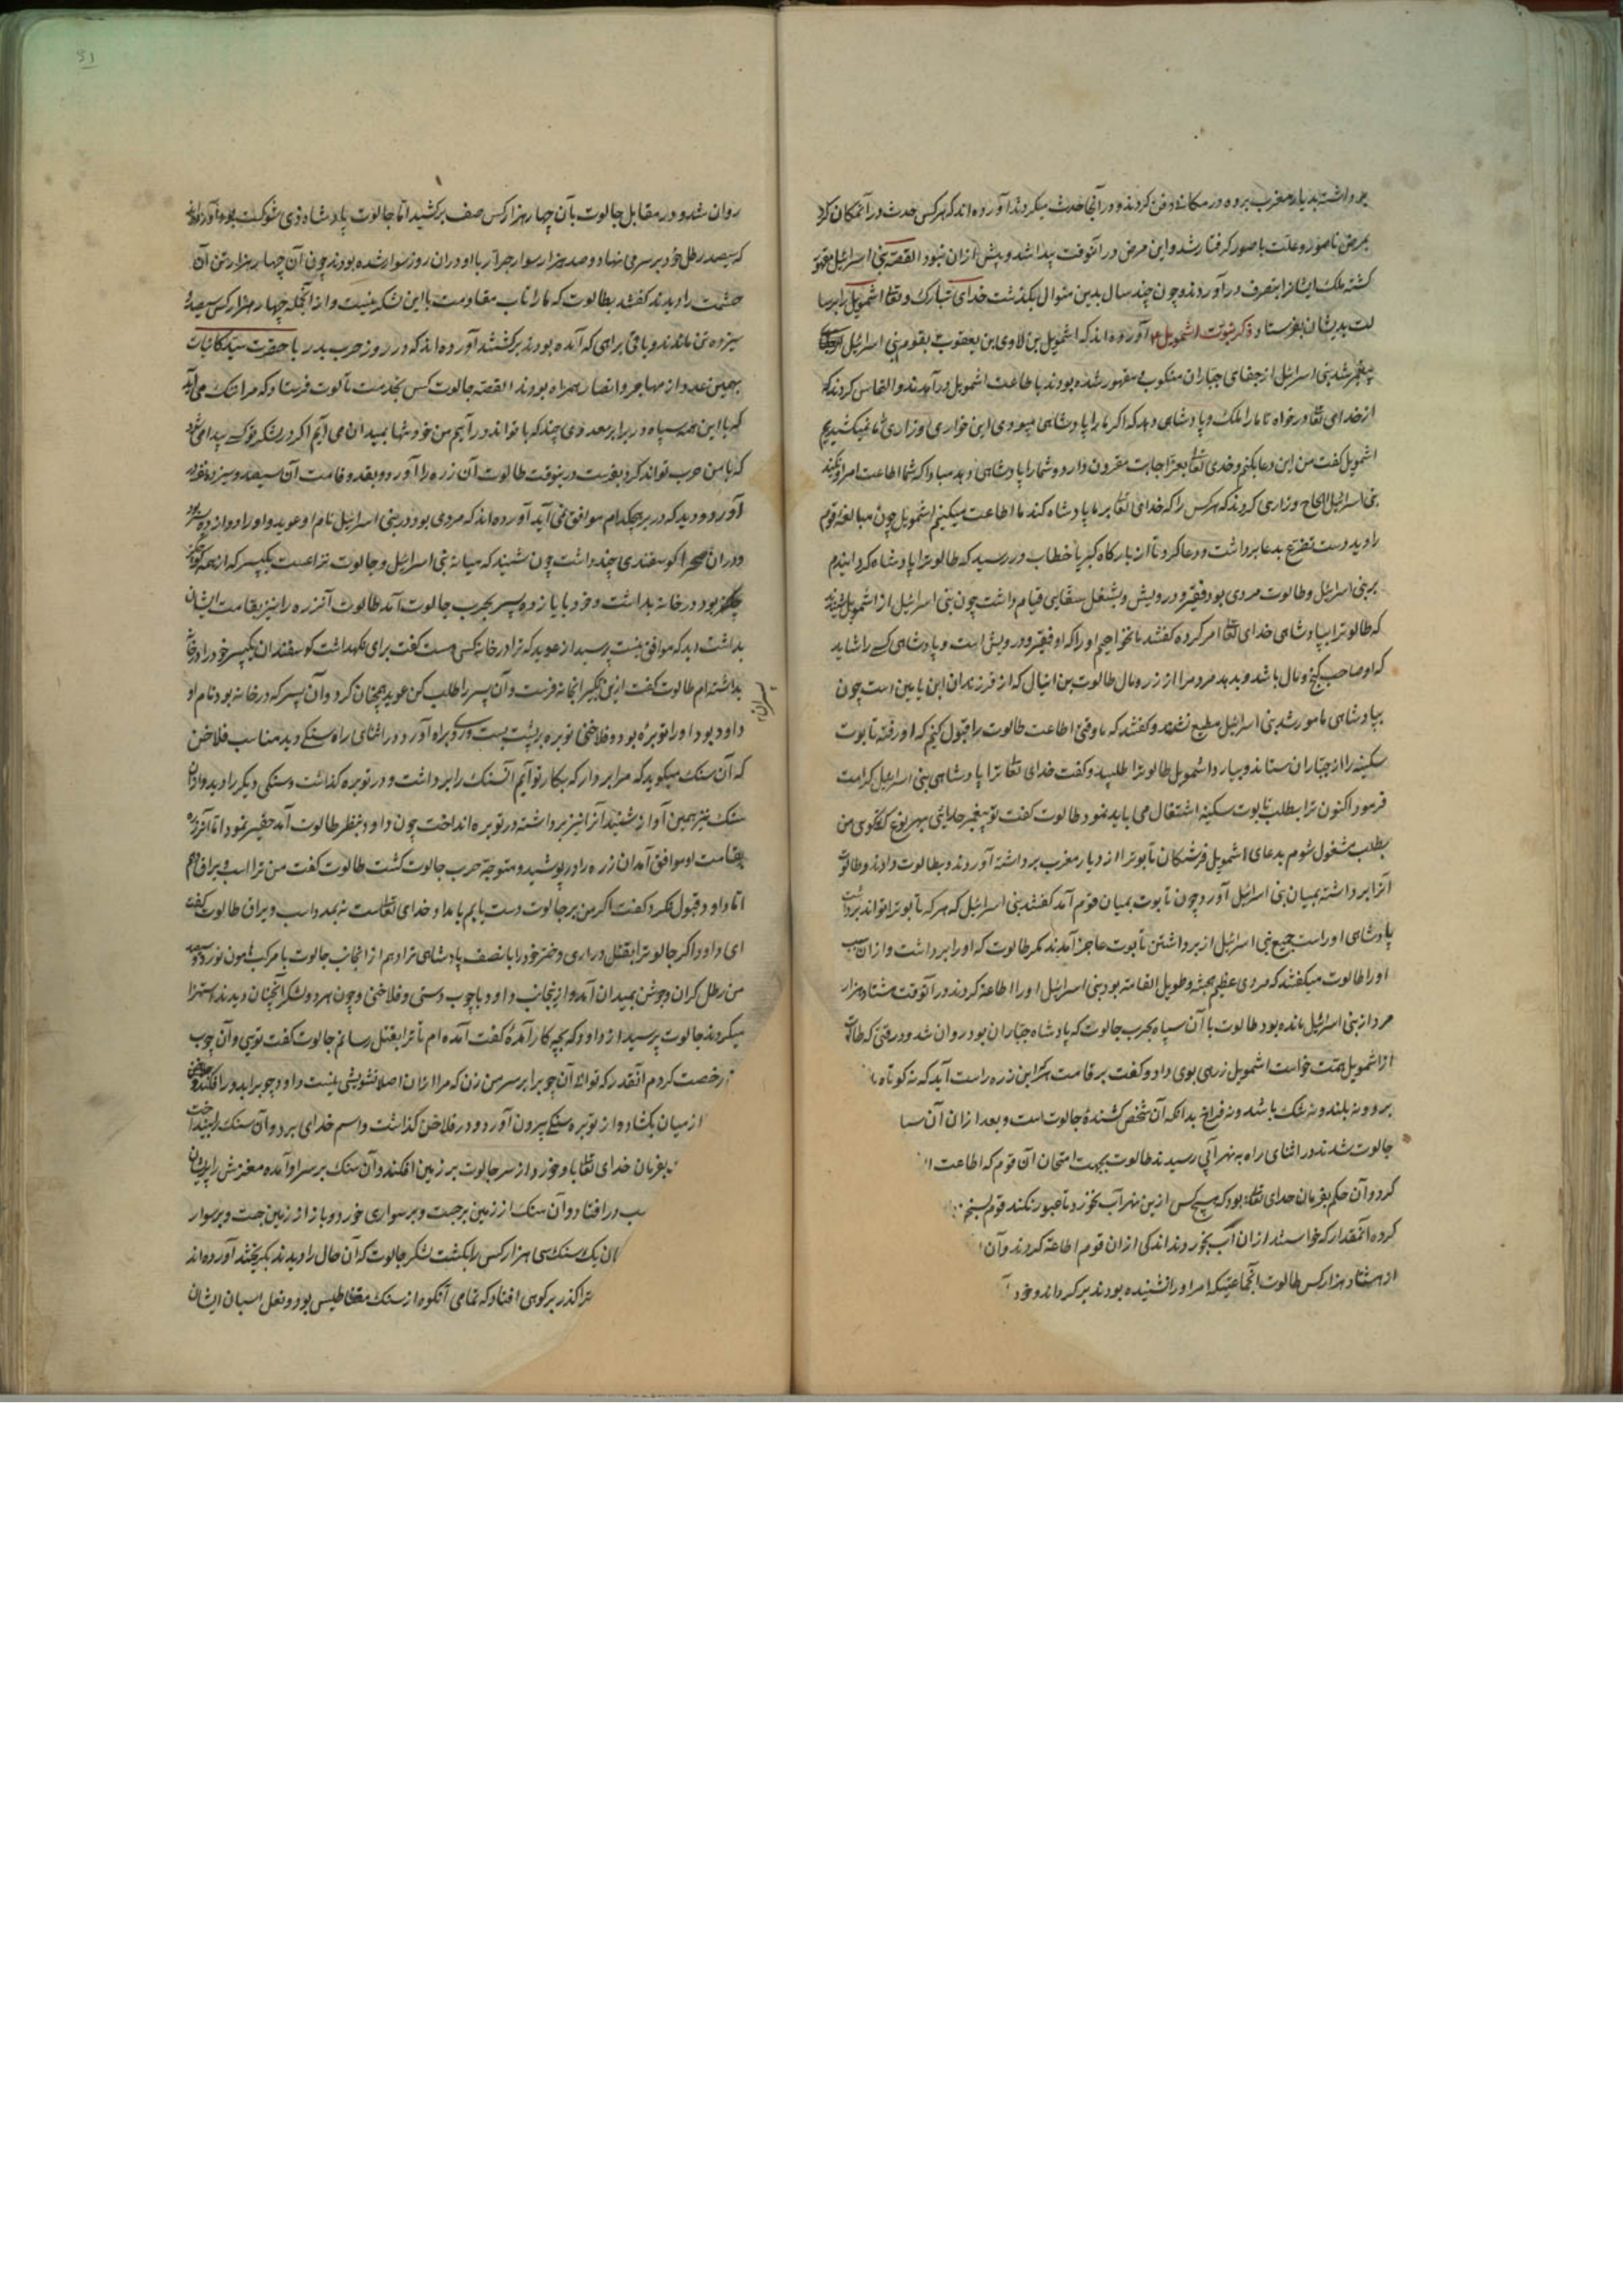 برداشته بدیار مغرب برده در مکانه دفن کردند و در آنجا حدث میکردند آورده اند که هر کس حدث در آنمکان کرد
بمرض ناصور و علت باصور گرفتار شد و این مرض در آنوقت پیدا شد و پیش از آن نبود القصه بنی اسرائیل مقهور
کشته ملک ایشانرا بتصرف درآوردند و چون چند سال بدین منوال بگذشت خدای تبارک و تعالی اشمویل را برسا
لت بدیشان بفرستاد ذکر نبوت اشمویل ۴ آورده اند که اشمویل بن لاوی ابن یعقوب بقوم بنی اسرائیل
پیغمبر شد بنی اسرائیل از جفای جباران منکوب و مقهور شده بودند باطاعت اشمویل درآمدند و التماس کردند که
از خدای تعالی درخواه تا ما را ملک و پادشاهی دهد که اگر ما را پادشاهی میبودی این خواری و زاری تا نمیکشیدیم
اشمویل کفت من این دعا بکنم و خدای تعالی بعز اجابت مقرون دارد و شما را پادشاهی دهد مبادا که شما اطاعت امر او نکنند
بنی اسرائیل الحاح و زاری کردند که هر کس را که خدای تعالی بر ما پادشاه کند ما اطاعت میکنیم اشمویل چون مبالغه قوم
را دید دست تضرع بدعا برداشت و دعا کرد تا از بارگاه کبریا خطاب در رسید که طالوترا پادشاه کردانیدم
بر بنی اسرائیل و طالوت مردی بود فقیر و درویش و بشغل سقایی قیام داشت چون بنی اسرائیل از اشمویل شنیدند
که طالوترا بپادشاهی خدای تعالی امر کرده کفتند ما نخواهیم او را که او فقیر و درویش است و پادشاهی کسی را شاید
که او صاحب کنج و مال باشد و بدهد مردم را از زر و مال طالوت بن انیال که از فرزندان ابن یامین است چون
بپادشاهی مامور شد بنی اسرائیل مطیع نشدند و کفتند که ما وقتی اطاعت طالوت را قبول کنیم که او رفته تابوت
سکینه را از جباران ستاند و بیارد اشمویل طالوترا طلبید و کفت خدای تعالی ترا پادشاهی بنی اسرائیل کرامت
فرمود اکنون ترا بطلب تابوت سکینه اشتغال می باید نمود طالوت کفت تو پیغمبر خدایی بهر نوع که کوی من
بطلب مشغول شوم بدعای اشمویل فرشتگان تابوترا از دیار مغرب برداشته آوردند و بطالوت دادند و طالوت
آنرا برداشته بمیان بنی اسرائیل آورد چون تابوت بمیان قوم آمد کفتند بنی اسرائیل که هر که تابوترا تواند برداشت
پادشاهی او راست جمیع بنی اسرائیل از برداشتن تابوت عاجز آمدند مگر طالوت که او را برداشت و از آن سبب
او را طالوت میکفتند که مردی عظیم جثه و طویل القامة بود بنی اسرائیل او را اطاعة کردند در آنوقت هشتاد هزار
مرد از بنی اسرائیل مانده بود طالوت با آن سپاه بحرب جالوت که پادشاه جباران بود روان شد و در وقتی که طالوت
از اشمویل همت خواست اشمویل زرهی بوی داد و کفت بر قامت هر که این زره راست آید که نه کوتاه
بود و نه بلند و نه تنک باشد و نه فراخ بدانکه آن شخص کشنده جالوت است و بعد از آن آن سپا
جالوت شدند در اثنای راه به نهر آبی رسیدند طالوت بجهت امتحان آن قوم که اطاعت
کرد و آن حکم بفرمان خدای تعالی بود که هیچ کس ازین نهر آب نخورد تا عبور نکند قوم
کرده آنمقدار که خواستند از آن آب بخوردند اندکی از آن قوم اطاعة کردند و آن
از هشتاد هزار کس طالوت آنجماعتیکه امر او را نشنیده بودند برگرداند و خود
روان شد و در مقابل جالوت با آن چهار هزار کس صف برکشید اما جالوت پادشاه ذی شوکت بود آورده اند
که سیصد رطل خود بر سر می نهاد و صد هزار سوار جرار با او در آن روز سوار شده بودند چون آن چهار هزار تن آن
حشمت را دیدند کفتند بطالوت که ما را تاب مقاومت با این لشکر نیست و از آنجمله چهار هزار کس سیصد
سیزده تن ماندند و باقی براهی که آمده بودند برگشتند آورده اند که در روز حرب بدر با حضرت سید کائنات
بهمین عدد از مهاجر و انصار همراه بودند القصه جالوت کس بخدمت طالوت فرستاد که مرا ننک می آید
که با این همه سپاه در برابر معدودی چند که با تو اند درآیم من خود تنها بمیدان می آیم اگر در لشکر تو کسی پیدا می شود
که با من حرب تواند کرد بفرست درینوقت طالوت آن زره را آورد و بقد و قامت آن سیصد و سیزده نفر
آورد و دید که در بر هیچکدام موافق نمی آید آورده اند که مردی بود در بنی اسرائیل نام او عوید و او را دوازده پسر بود
و در آن صحرا کوسفندی چند داشت چون شنید که میانه بنی اسرائیل و جالوت نزاعست یکپسر که از همه
بود در خانه بداشت و خود با یازده پسر بحرب جالوت آمد طالوت آنزره را نیز بقامت ایشان
بداشت دید که موافق نیست پرسید از عوید که ترا در خانه کسی هست کفت برای نگهداشت کوسفندان یکپسر خود را در خانه
بداشته ام طالوت کفت ازین یکی را بخانه فرست و آن پسر را طلب کن عوید همچنان کرد و آن پسر که در خانه بود نام او
داود بود او را توبره بود و فلاخنی توبره بر پشت بست و روی براه آورد و در اثنای راه سنکی دید مناسب فلاخن
که آن سنک میکوید که مرا بردار که بکار تو آیم آنسنک را برداشت و در توبره کذاشت و سنکی دیکر را دید و از آن
سنک نیز همین آواز شنید آنرا نیز برداشته در توبره انداخت چون داود بنظر طالوت آمد حقیر نمود اما آنزره
بقامت او موافق آمد آن زره را در پوشید و متوجه حرب جالوت کشت طالوت کفت من ترا اسب و یراق دهم
اما داود قبول نکرد و کفت اگر من بر جالوت دست یابم بامداد خدای تعالی است نه بمدد اسب و یراق طالوت کفت
ای داود اگر جالوترا بقتل دراری دختر خود را با نصف پادشاهی ترا دهم از آنجانب جالوت با مرکب هامون نورد و سیصد
من رطل کران و جوشن بمیدان آمد و ازینجانب داود با چوب دستی و فلاخنی و چون هر دو لشکر آنچنان دیدند استهزا
میکردند جالوت پرسید از داود که بچه کار آمدهٔ کفت آمده ام تا ترا بقتل رسانم جالوت کفت تویی و آن چوب
رخصت کردم آنقدر که توانی آن چوبرا بر سر من زن که مرا از آن اصلا تشویشی نیست داود چوبرا بدور افکند و فلاخن
از میان بکشاد و از توبره سنکی بیرون آورد و در فلاخن کذاشت و اسم خدای برد و آن سنک را بینداخت
بفرمان خدای تعالی باد خود از سر جالوت بر زمین افکند و آن سنک بر سر او آمده مغزش را پریشان
سب درافتاد و آن سنک از زمین برجست و بر سواری خورد و باز از زمین جست و بر سوار
آن یک سنک سی هزار کس را بکشت لشکر جالوت که آن حال را دیدند بگریختند آورده اند
را کذر بر کوهی افتاد که تمامی آنکوه از سنک مغناطیس بود و نعل اسبان ایشان